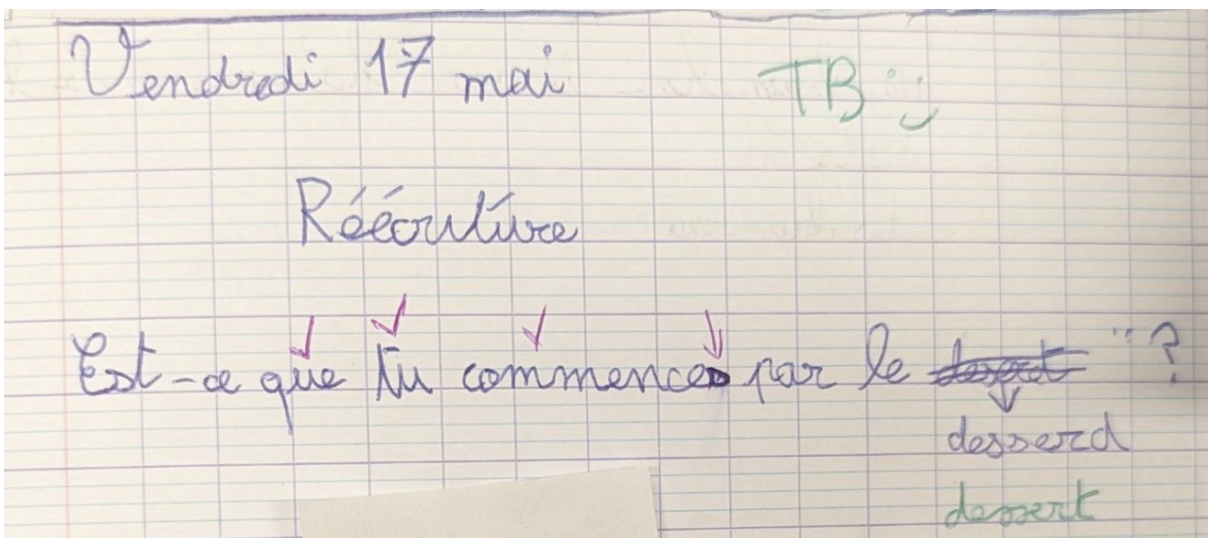 Vendredi 17 mai TB
Réécriture
Est-ce que tu commences par le "?
desserd
dessert